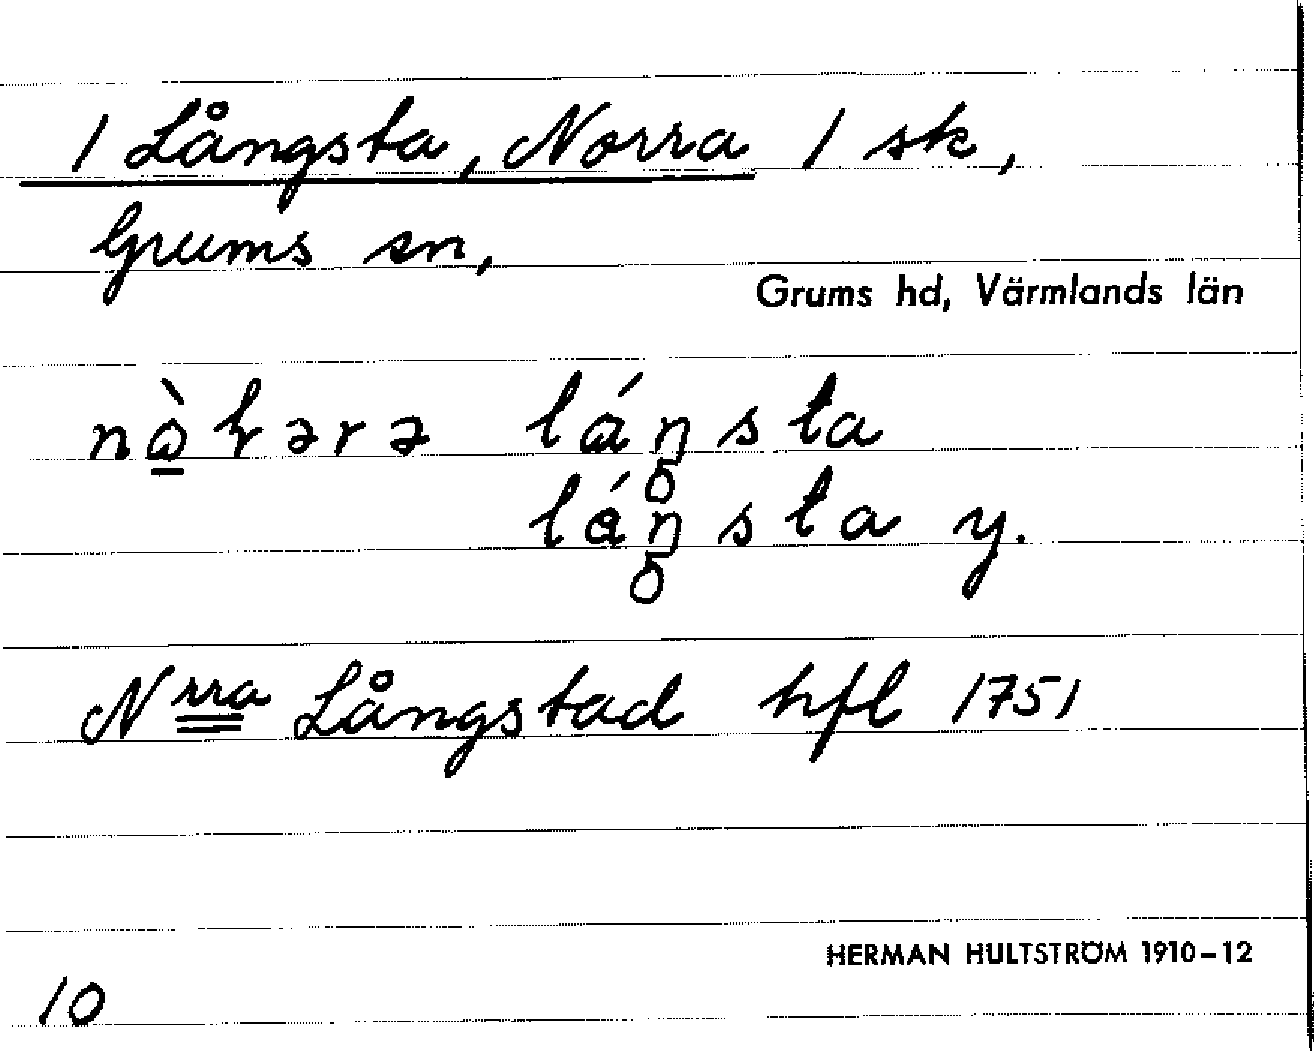 1 Långsta, Norra 1 sk,
Grums sn,
Grums hd, Värmlands län
lánsta
lánsta y.
N rra Långstad hfl 1751
HERMAN HULTSTRÖM 1910-12
10